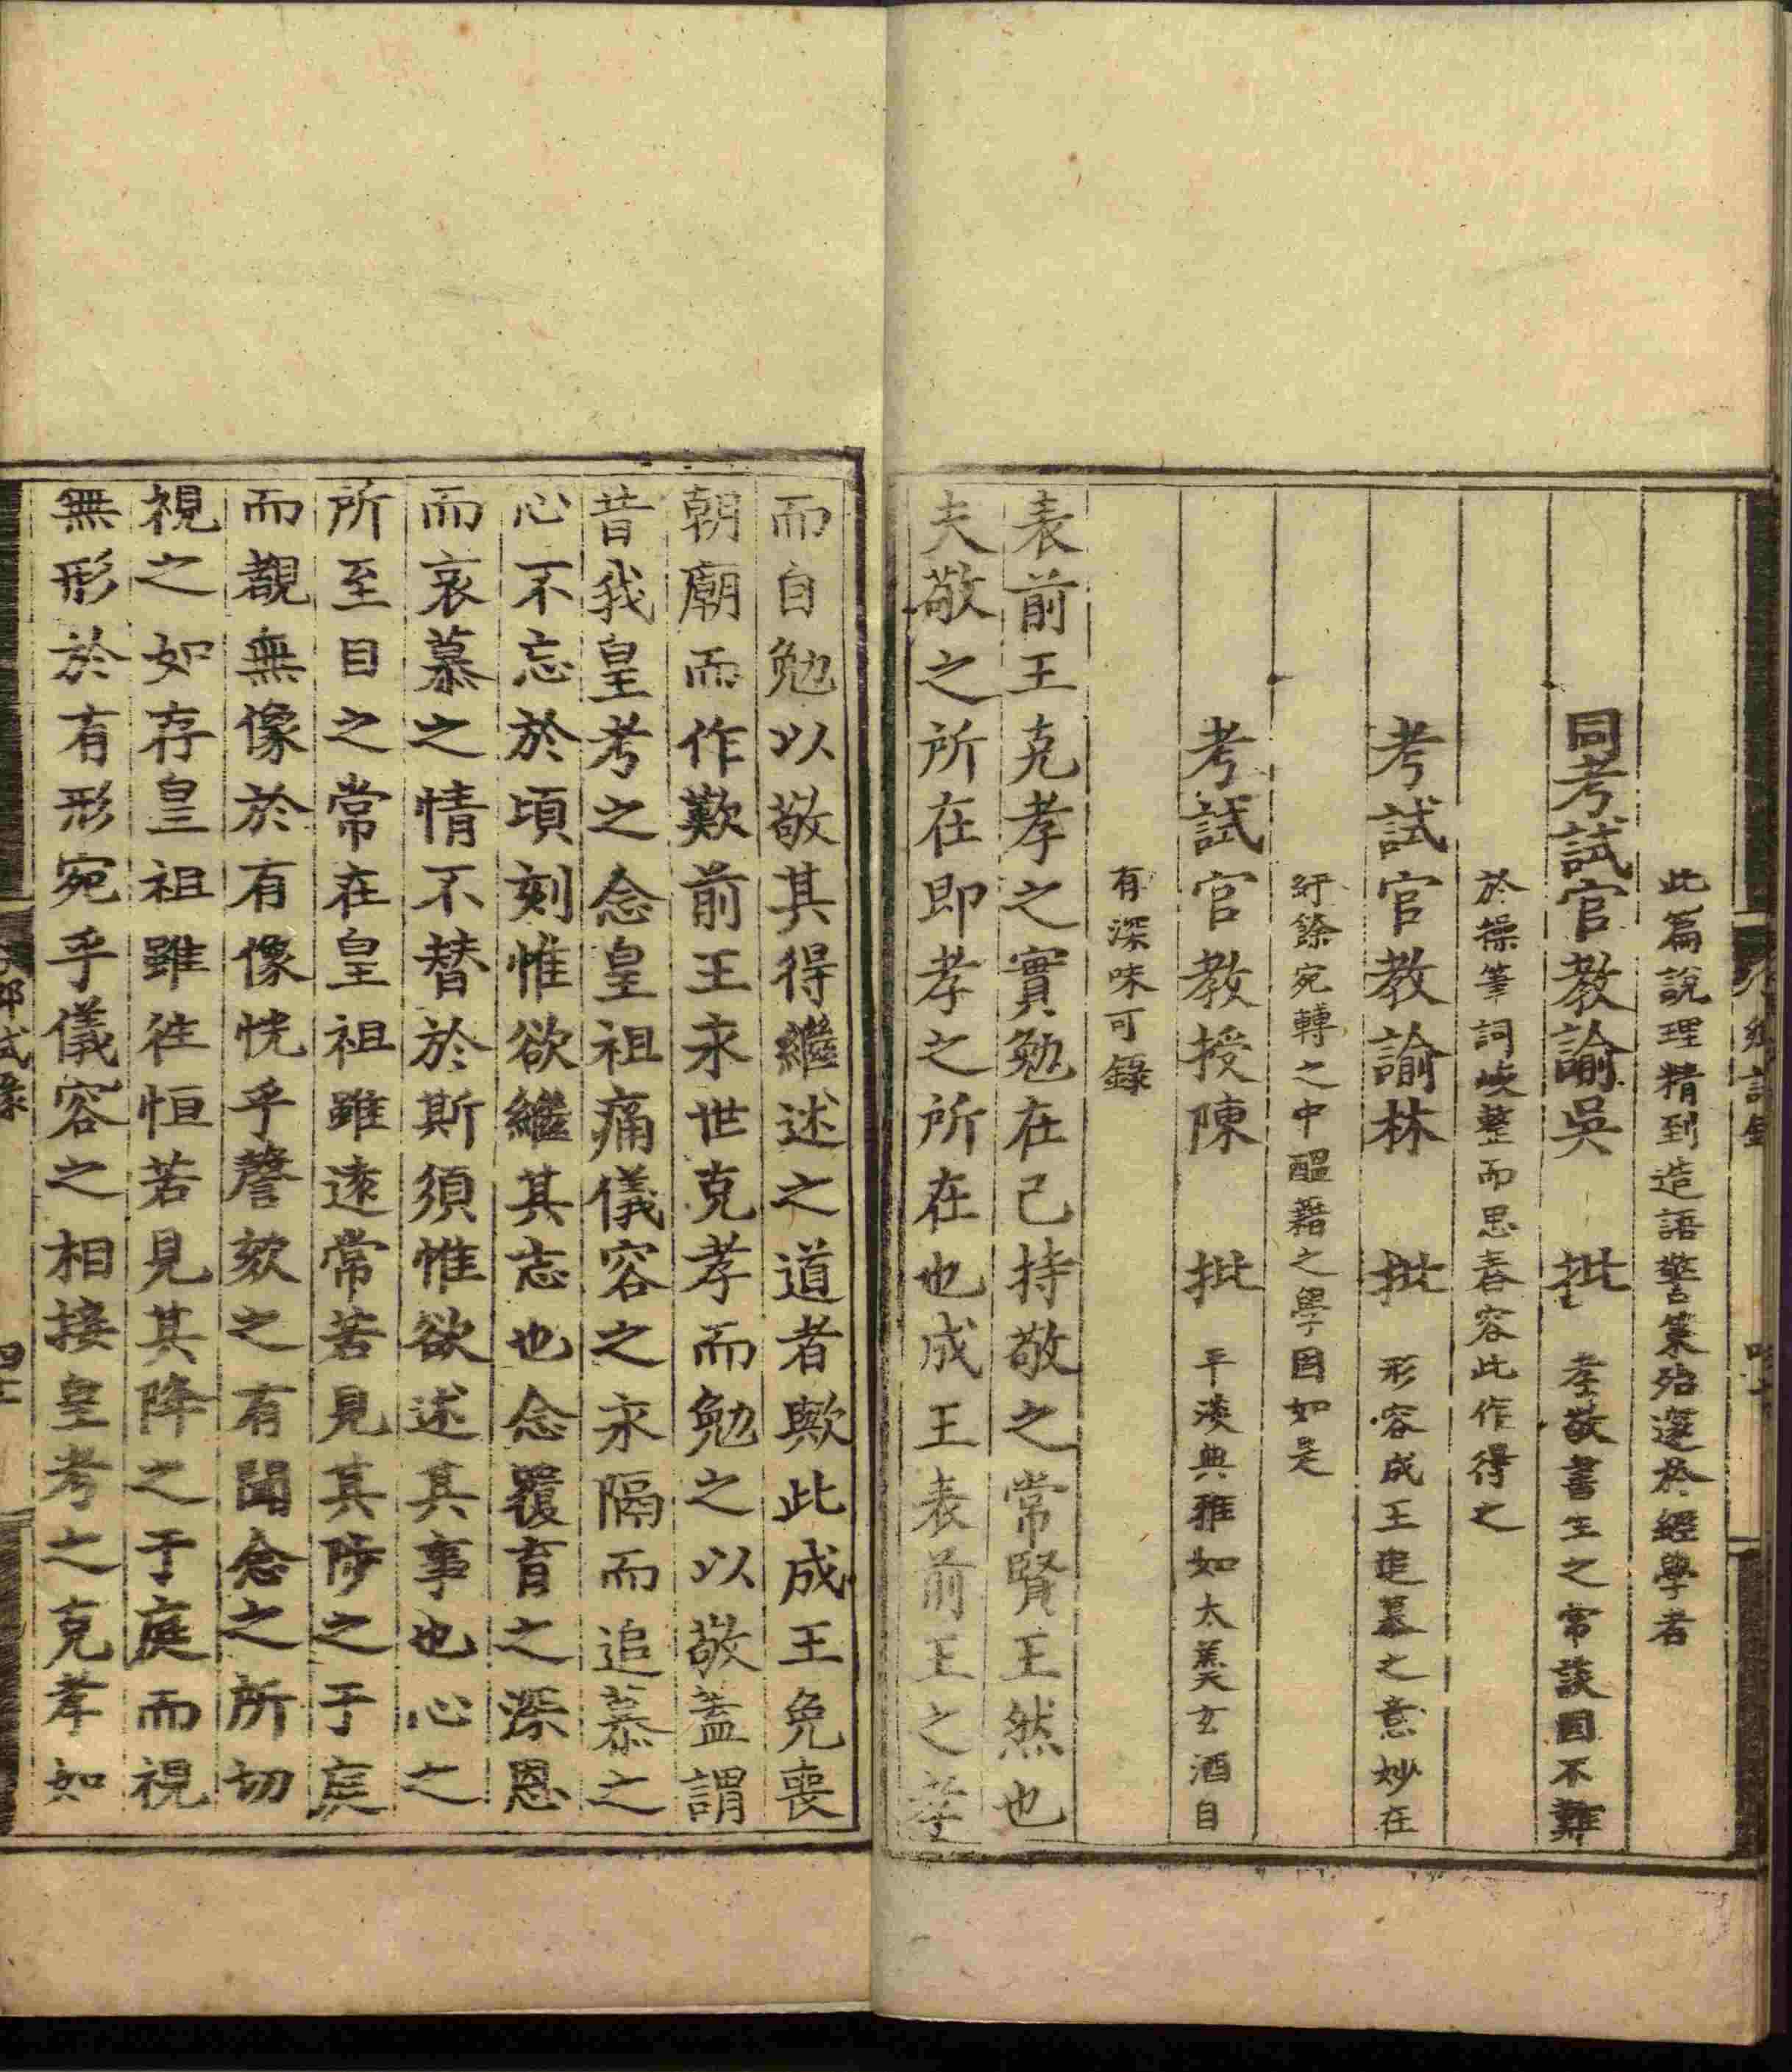 此篇說理精到造語警策殆邃於經學者
同考試官教諭吳　批　孝敬書生之常談固不難
於操筆詞峻整而思舂容此作得之
考試官教諭林　批　形容成王追慕之意妙在
紆餘宛轉之中醞藉之學固如是
考試官教授陳　批　平淡典雅如太羹玄酒自
有深味可錄
表前王克孝之實勉在己持敬之常賢王然也
夫敬之所在即孝之所在也成王表前王之孝
而自勉以敬其得繼述之道者歟此成王免喪
朝廟而作歎前王永世克孝而勉之以敬蓋謂
昔我皇考之念皇祖痛儀容之永隔而追慕之
心不忘於頃刻惟欲繼其志也念覆育之深恩
而哀慕之情不替於斯須惟欲述其事也心之
所至目之常在皇祖雖遠常若見其陟之于庭
而覩無像於有像恍乎謦欬之有聞念之所切
視之如存皇祖雖徃恒若見其降之于庭而視
無形於有形宛乎儀容之相接皇考之克孝如